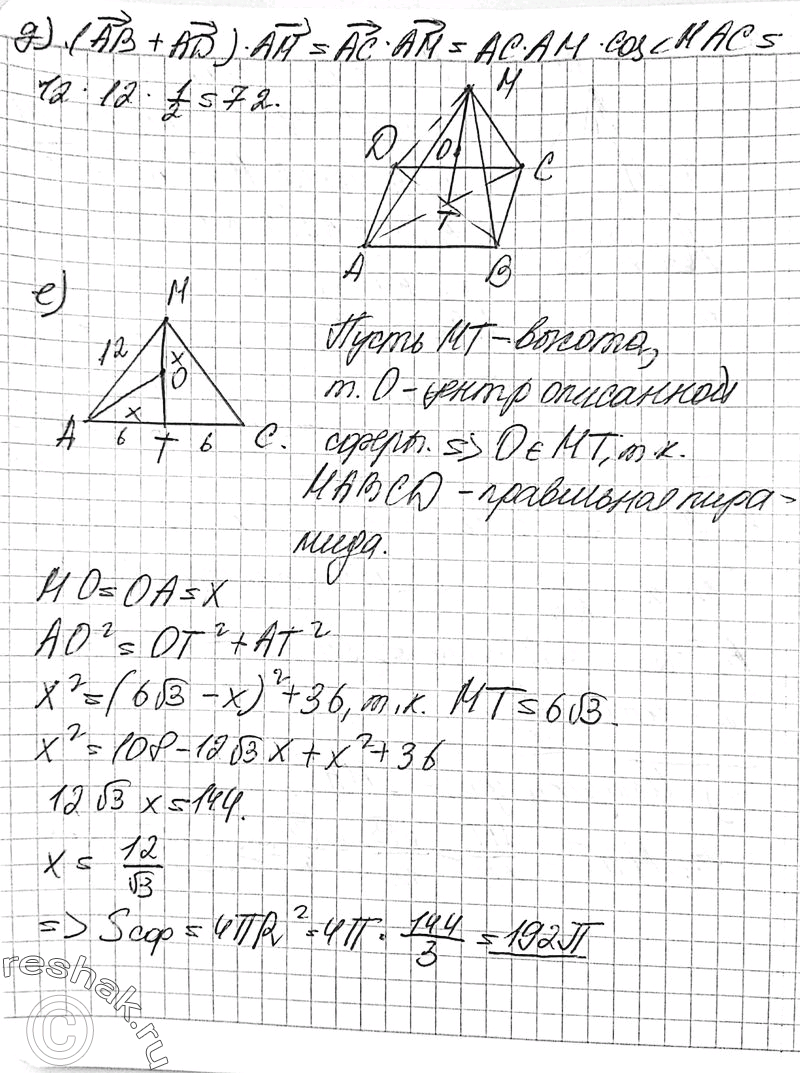 д) (AB + AD)·AM = AC·AM = AC·AM·cos<MAC =
12·12·1/2 = 72.
M
D O C
T
A B
е) M
12 x
O
A x C.
6 T 6
Пусть MT – высота,
т. O – центр описанной
сферы. => O ∈ MT, т.к.
MABCD – правильная пира-
мида.
MO = OA = x
AO² = OT² + AT²
x² = (6√3 - x)² + 36, т.к. MT = 6√3.
x² = 108 - 12√3 x + x² + 36
12√3 x = 144.
x = 12/√3
=> Sсф = 4ПR² = 4П · 144/3 = 192П
reshak.ru
©